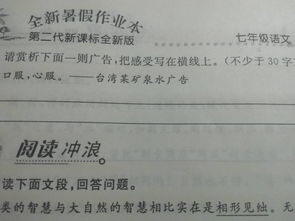 全新暑假作业本
第二代新课标全新版
七年级语文
请赏析下面一则广告,把感受写在横线上。(不少于30字
口服,心服。——台湾某矿泉水广告
阅读冲浪
读下面文段,回答问题。
类的智慧与大自然的智慧相比实在是相形见绌。无